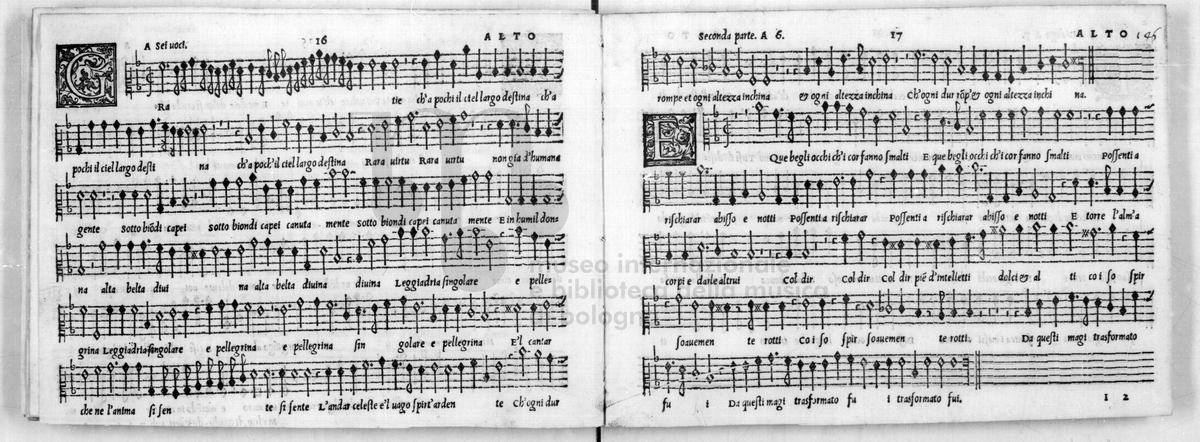 A Sei uoci. 16 ALTO
G RA tie ch'a pochi il ciel largo destina ch'a
pochi il ciel largo desti na ch'a poch'il ciel largo destina Rara uirtu Rara uirtu non gia d'humana
gente sotto biōdi capei sotto biondi capei canuta mente sotto biondi capei canuta mente E in humil donn
na alta belta diui na alta belta diuina diuina Leggiadria singolare e pelleg
grina Leggiadria singolare e pellegrina e pellegrina sin golare e pellegrina E'l cantar
che ne l'anima si sen te si sente L'andar celeste e'l uago spirt'arden te Ch'ogni dur
Seconda parte. A 6. 17 ALTO
rompe et ogni altezza inchina & ogni altezza inchina Ch'ogni dur rōp'& ogni altezza inchi na.
E Que begli occhi ch'i cor fanno smalti E que begli occhi ch'i cor fanno smalti Possenti a
rischiarar abisso e notti Possenti a rischiarar Possenti a rischiarar abisso e notti E torre l'alm'a
corpi e darle altrui Col dir Col dir Col dir piē d'intelletti dolci & al ti co i so spir
soauemen te rotti Co i so spir soauemen te rotti. Da questi magi trasformato
fu i Da questi magi trasformato fu i trasformato fui.
I 2
museo internazionale
e biblioteca della musica
di bologna